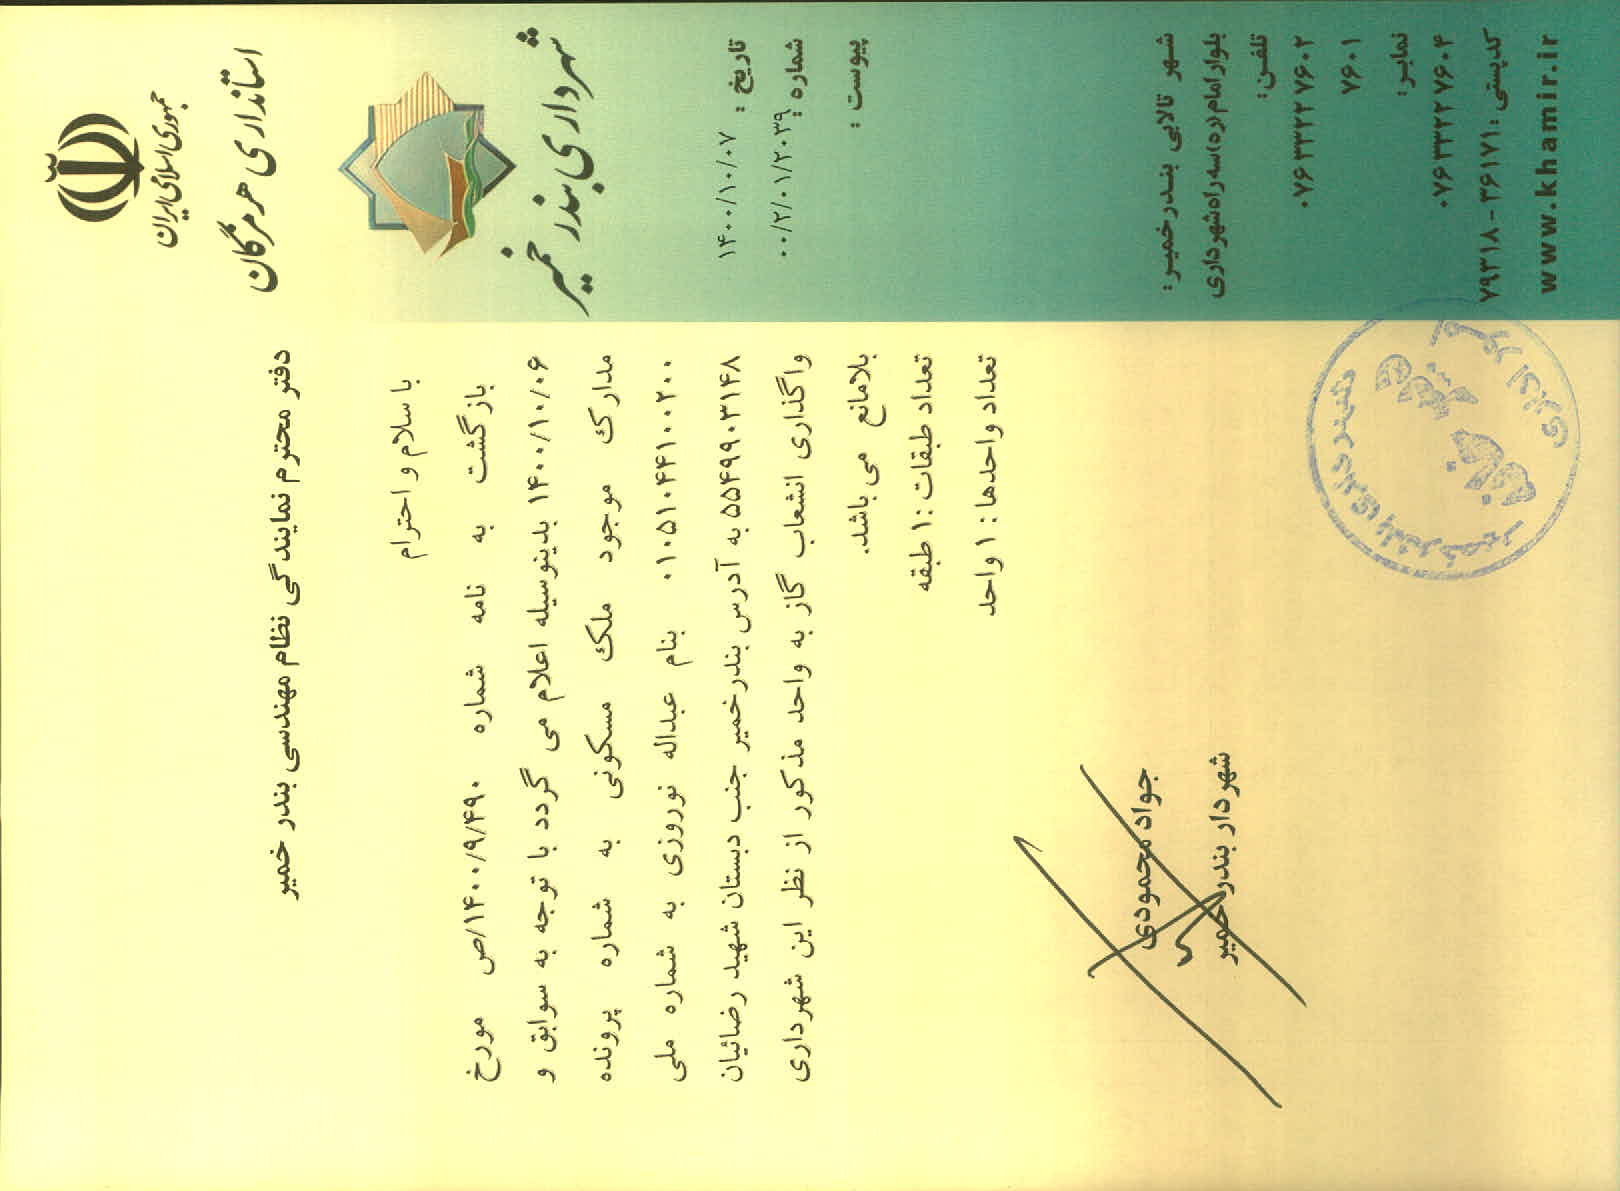 جمهوری اسلامی ایران
استانداری هرمزگان
شهرداری بندر خمیر
تاریخ : ۱۴۰۰/۱۰/۰۷
شماره : ۰۰/۲/۰۱/۲۰۳۹
پیوست :
دفتر محترم نمایندگی نظام مهندسی بندر خمیر
با سلام و احترام
بازگشت به نامه شماره ۱۴۰۰/۹/۴۹۰/ص مورخ
۱۴۰۰/۱۰/۰۶ بدینوسیله اعلام می گردد با توجه به سوابق و
مدارک موجود ملک مسکونی به شماره پرونده
۰۱۰۵۱۰۴۴۱۰۰۲۰۰ بنام عبداله نوروزی به شماره ملی
۵۵۴۹۹۰۳۱۴۸ به آدرس بندرخمیر جنب دبستان شهید رضائیان
واگذاری انشعاب گاز به واحد مذکور از نظر این شهرداری
بلامانع می باشد.
تعداد طبقات :۱ طبقه
تعداد واحدها : ۱ واحد
جواد محمودی
شهردار بندر خمیر
شهرداری بندر خمیر
امور اداری
شهر تالابی بندرخمیر:
بلوار امام (ره) سه راه شهرداری
تلفن:
۰۷۶۳۳۲۲۷۶۰۲
۷۶۰۱
نمابر:
۰۷۶۳۳۲۲۷۶۰۴
کدپستی: ۳۶۱۷۱ - ۷۹۳۱۸
www.khamir.ir